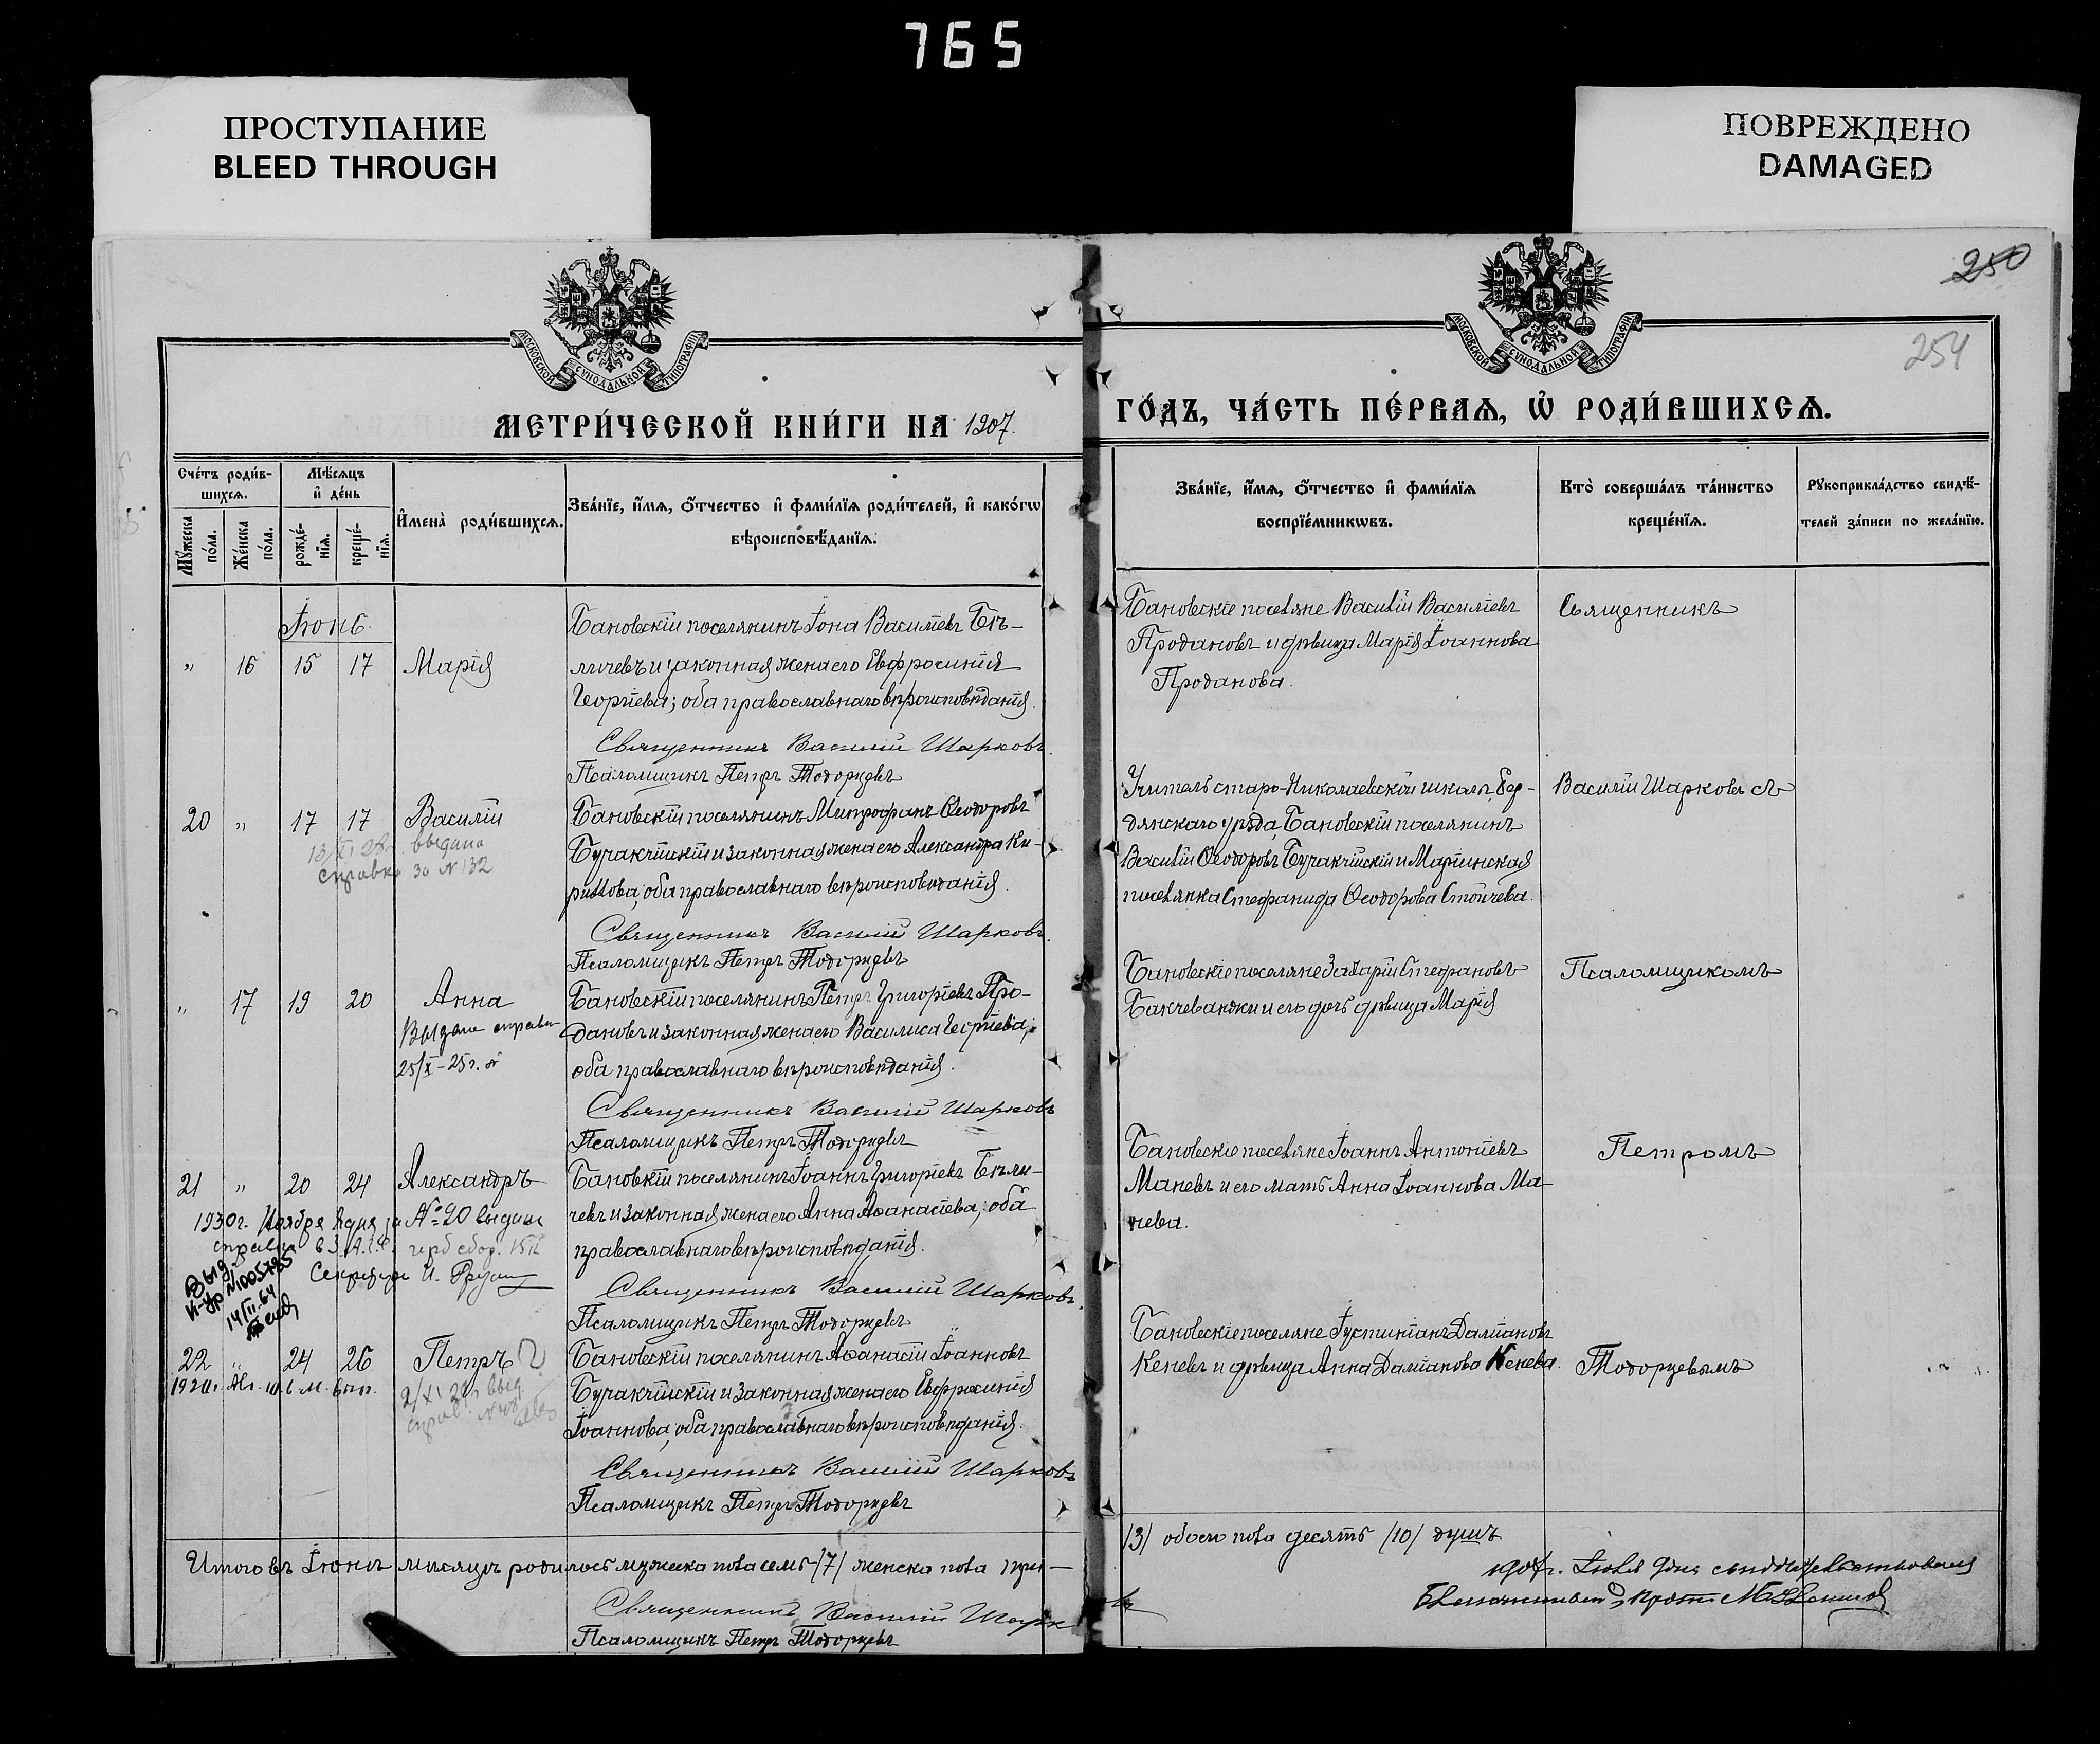 765
ПРОСТУПАНИЕ
BLEED THROUGH
ПОВРЕЖДЕНО
DAMAGED
250
254
МОСКОВСКОЙ СѴНОДАЛЬНОЙ ТИПОГРАФІИ
МОСКОВСКОЙ СѴНОДАЛЬНОЙ ТИПОГРАФІИ
МЕТРИ́ЧЕСКОЙ КНИ́ГИ НА 1907.
ГО́ДЪ, ЧА́СТЬ ПЕ́РВАѦ, Ѡ҆ РОДИ́ВШИХСѦ.
Сче́тъ роди́в-
шихсѧ.
Мѣ́сѧцъ
и҆ де́нь
Мꙋ́жеска
по́ла.
Же́нска
по́ла.
рожде́-
нїѧ.
креще́-
нїѧ.
И҆мена̀ роди́вшихсѧ.
Зва́нїе, и҆́мѧ, ѻ҆́тчество и҆ фами́лїѧ роди́телей, и҆ како́гѡ
вѣроисповѣ́данїѧ.
Зва́нїе, и҆́мѧ, ѻ҆́тчество и҆ фами́лїѧ
воспрїе́мникѡвъ.
Кто̀ соверша́лъ та́инство
креще́нїѧ.
Рꙋкоприкла́дство свидѣ́-
телей за́писи по жела́нїю.
Іюнь.
" 16 15 17 Марія
Бановскій поселянинъ Іона Василіевъ Бѣ-
личевъ и законная жена его Евфросинія
Георгіева; оба православнаго вѣроисповѣданія.
Священникъ Василій Шарковъ.
Псаломщикъ Петръ Тодорцевъ
Бановскіе поселяне Василій Василіевъ
Продановъ и дѣвица Марія Іоаннова
Проданова.
Священникъ
20 " 17 17 Василій
выдана
справка за N 132
Бановскій поселянинъ Митрофанъ Ѳеодоровъ
Бучакчійскій и законная жена его Александра Ки-
риллова, оба православнаго вѣроисповѣданія.
Священникъ Василій Шарковъ.
Псаломщикъ Петръ Тодорцевъ
Учитель старо-Николаевской школы, Бер-
дянскаго уѣзда, Бановскій поселянинъ
Василій Ѳеодоровъ Бучакчійскій и Маріинская
поселянка Стефанида Ѳеодорова Стойчева.
Василій Шарковъ съ
" 17 19 20 Анна
Выдана справка
25/X-25 г. №
Бановскій поселянинъ Петръ Григоріевъ Про-
дановъ и законная жена его Василиса Георгіева;
оба православнаго вѣроисповѣданія.
Священникъ Василій Шарковъ
Псаломщикъ Петръ Тодорцевъ
Бановскіе поселяне Захарій Стефановъ
Бакчеванжи и его дочь дѣвица Марія
Псаломщикомъ
21 " 20 24 Александръ
1930 г. Ноября за № 20 выдана
справка герб сбор.
Секретарь И.
Выд.
14/II.64
Бановскій поселянинъ Іоаннъ Григоріевъ Бѣли-
чевъ и законная жена его Анна Аѳанасіева; оба
православнаго вѣроисповѣданія.
Священникъ Василій Шарковъ.
Псаломщикъ Петръ Тодорцевъ
Бановскіе поселяне Іоаннъ Антоніевъ
Маневъ и его мать Анна Іоаннова Ма-
нева.
Петромъ
22 " 24 26 Петръ
Бановскій поселянинъ Аѳанасій Іоанновъ
Бучакчійскій и законная жена его Евфросинія
Іоаннова, оба православнаго вѣроисповѣданія.
Священникъ Василій Шарковъ
Псаломщикъ Петръ Тодорцевъ
Бановскіе поселяне Іустиніанъ Даміановъ
Кеневъ и дѣвица Анна Даміанова Кенева.
Тодорцевымъ
Итого въ Іюнѣ мѣсяцѣ родилось мужеска пола семь /7/ женска пола три
/3/ обоего пола десять /10/ душъ
Священникъ Василій Шарковъ
Псаломщикъ Петръ Тодорцевъ
1907 г. Іюля дня свидѣтельствовалъ
Благочинный, Прот.